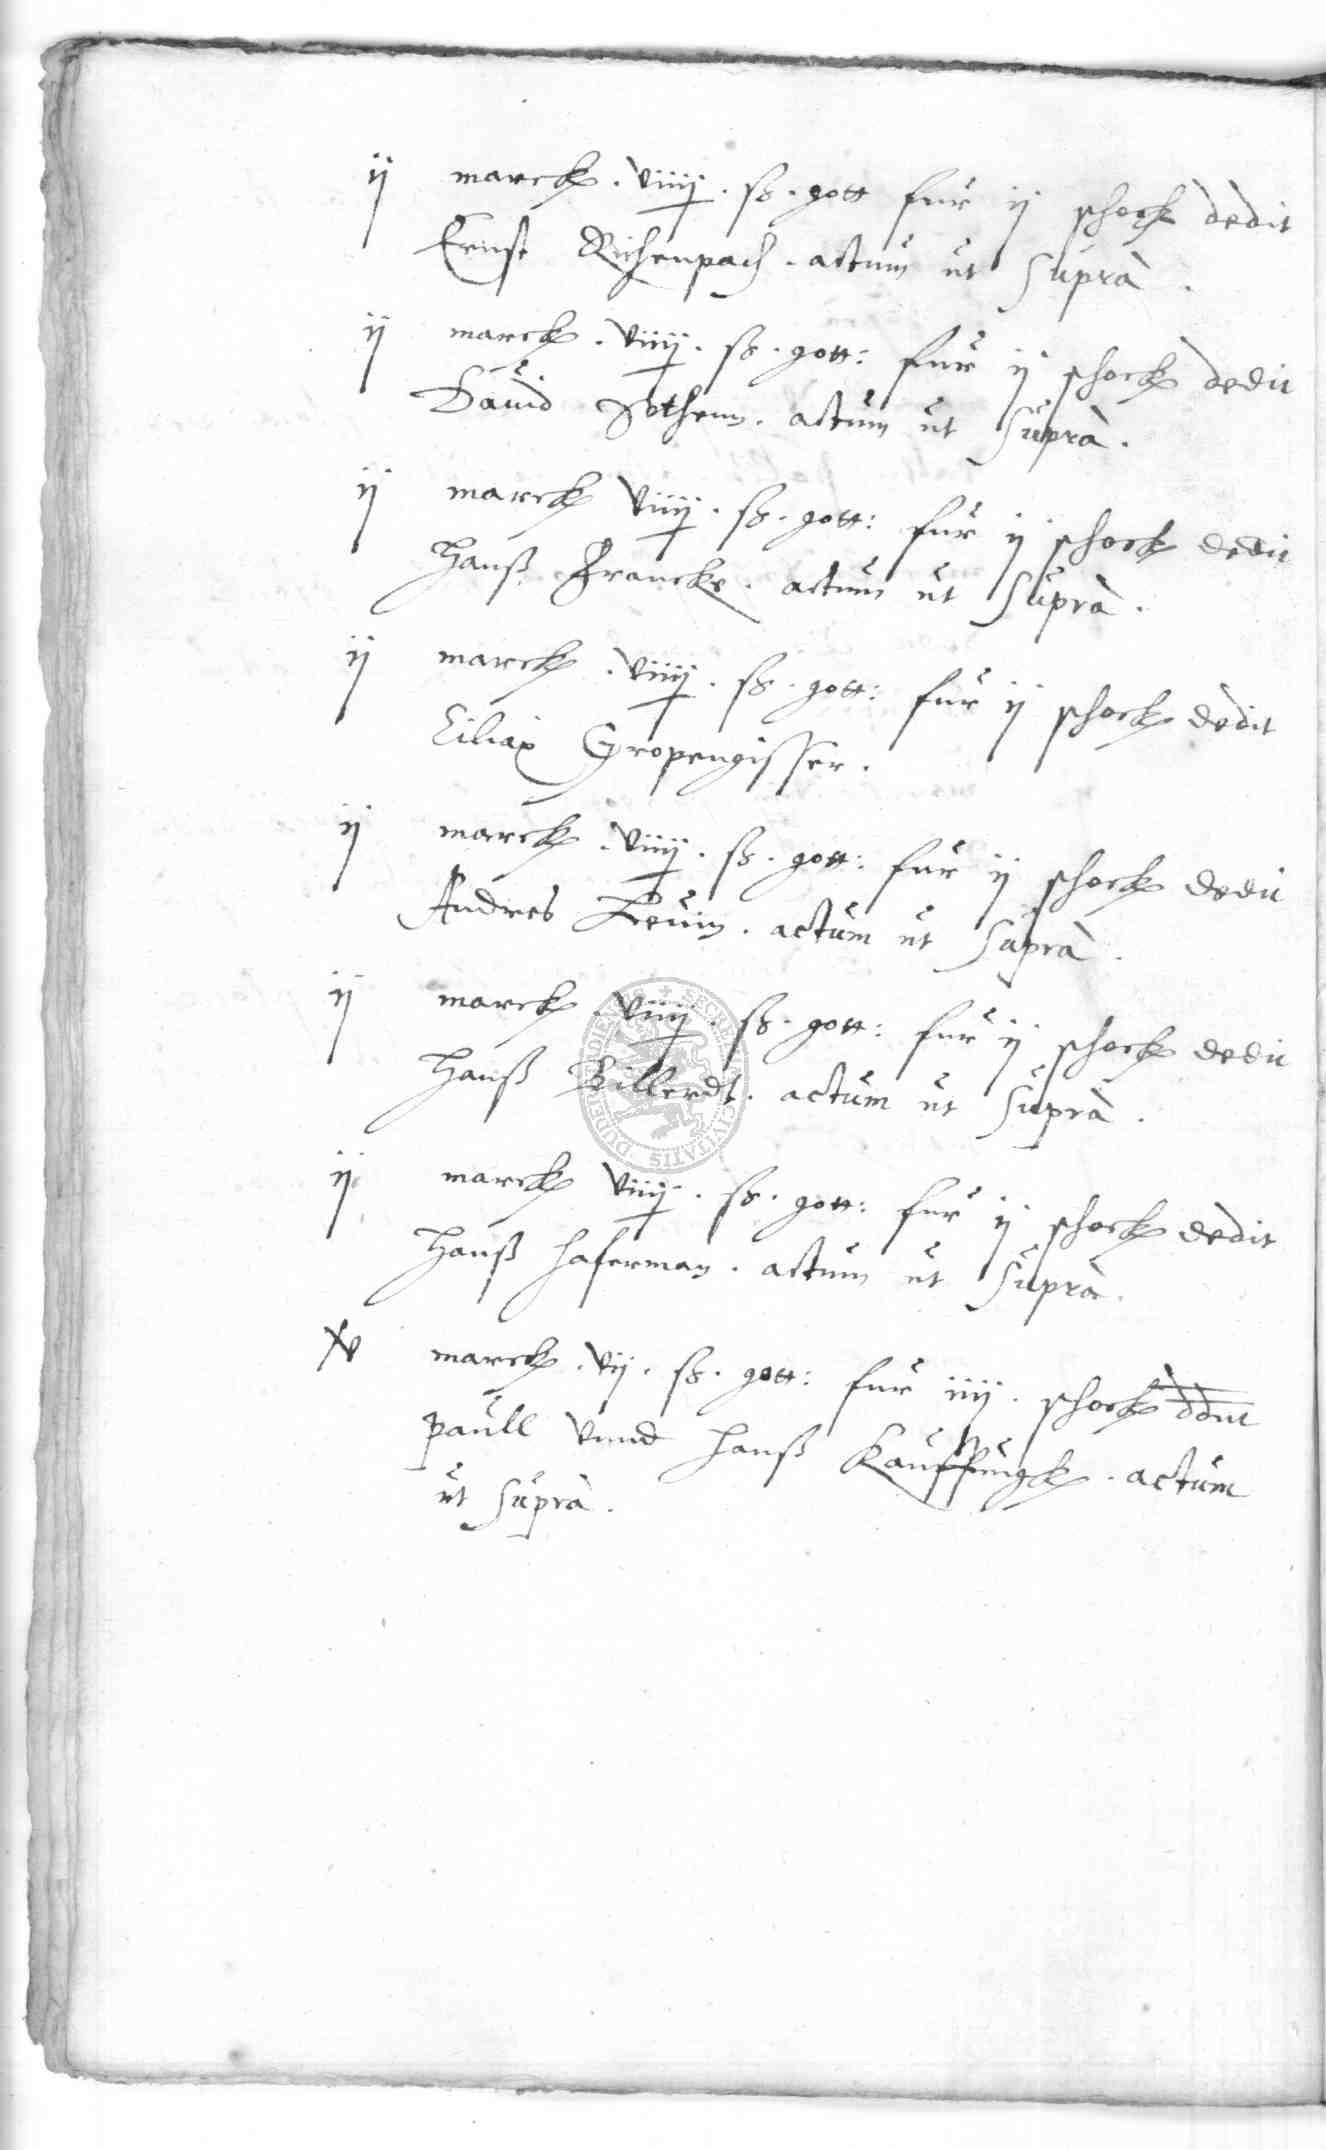 ij marck . viiij . ß . gott fur ij schock dedit
Ernst Richenpach . actum ut supra .
ij marck . viiij . ß . gott: fur ij schock dedit
Dauid . actum ut supra .
ij marck viiij . ß . gott: fur ij schock dedit
Hanß Francke . actum ut supra .
ij marck . viiij . ß . gott: fur ij schock dedit
Ciliax Gropengisser .
ij marck . viiij . ß . gott: fur ij schock dedit
Andres Leuin . actum ut supra .
ij marck . viiij . ß . gott: fur ij schock dedit
Hanß Billerdt . actum ut supra .
ij marck viiij . ß . gott: fur ij schock dedit
Hanß Haferman . actum ut supra .
v marck . vij . ß . gott: fur iiij . schock ddnt
Paull vnnd Hanß Kauffungk . actum
ut supra .
SECRETUM CIVITATIS DUDERSTADIENSIS